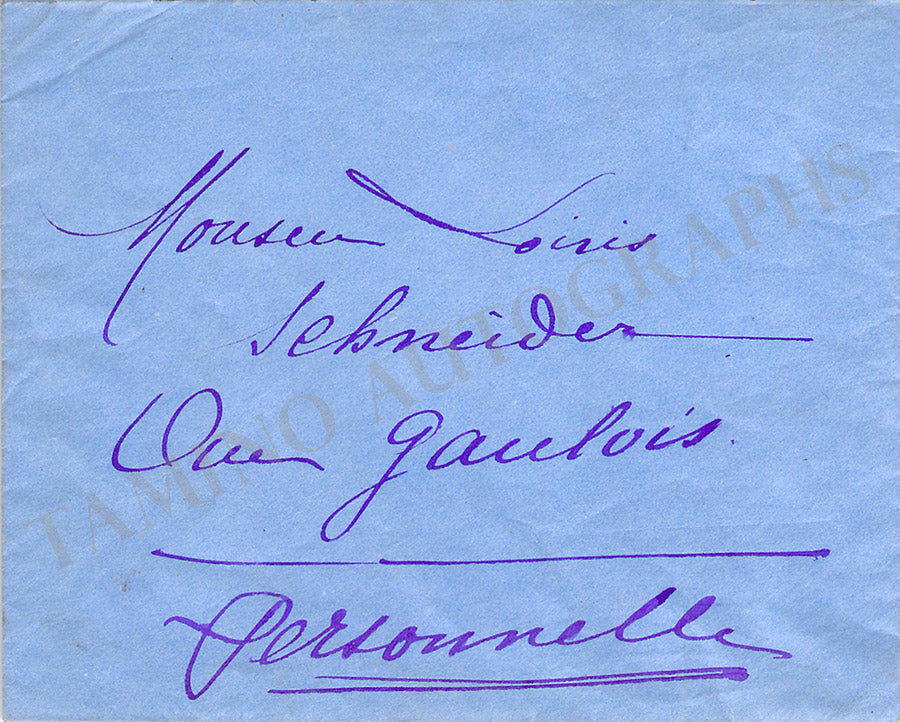 Monsieur Louis
Schneider
Au Gaulois
Personnelle
TAMINO AUTOGRAPHS